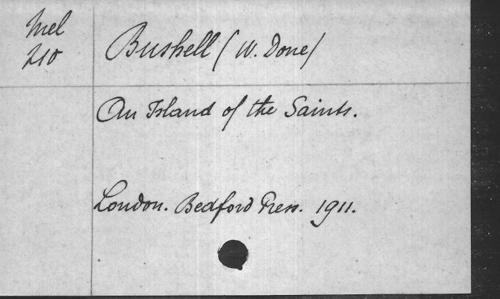 Mel
210
Bushell (W. Done)
An Island of the Saints.
London. Bedford Press. 1911.